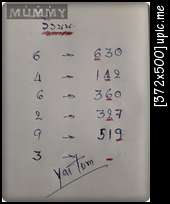 MUMMY
6 → 630
4 → 142
6 → 360
2 → 327
9 → 519
3 → -
Yai Tom
[372x500] upic.me